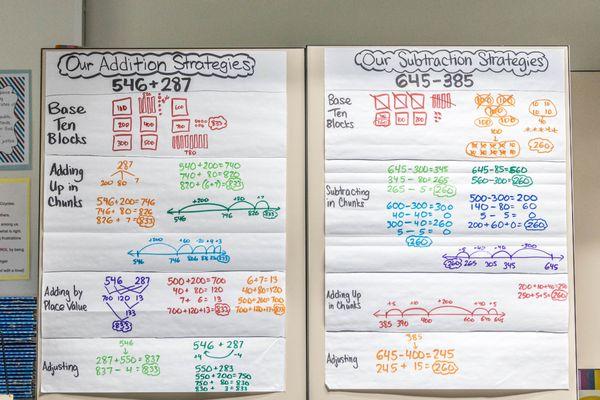 Our Addition Strategies
546+287
Base
Ten
Blocks
Adding
Up in
Chunks
287
200 80 7
546+200=746
746+80=826
826+7=833
540+200=740
740+80=820
820+(6+7)=833
+200 +80 +7
546 746 826 833
Adding by
Place Value
546 287
700 120 13
833
500+200=700
40+80=120
7+6=13
700+120+13=833
6+7=13
40+80=120
500+200=700
700+120+13=833
Adjusting
546
287+550=837
837-4=833
546+287
+4 -4
550+283
550+200=750
750+80=830
830+3=833
Our Subtraction Strategies
645-385
Base
Ten
Blocks
260
Subtracting
in Chunks
645-300=345
345-80=265
265-5=260
600-300=300
40-40=0
300-40=260
5-5=0
260
645-85=560
560-300=260
500-300=200
140-80=60
5-5=0
200+60+0=260
-5 -40 -40 -300
260 265 305 345 645
Adding Up
in Chunks
+5 +10 +200 +40 +5
385 390 400 600 640 645
200+10+40=250
250+5+5=260
Adjusting
385
645-400=245
245+15=260